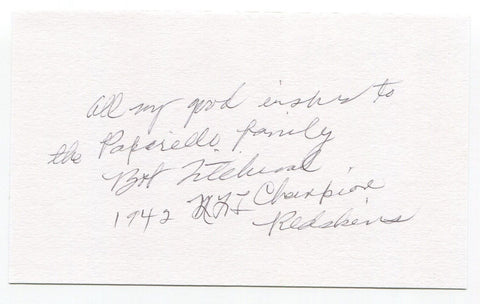 All my good wishes to
the Paparello family
Bob Titchenal
1942 NFL Champion
Redskins